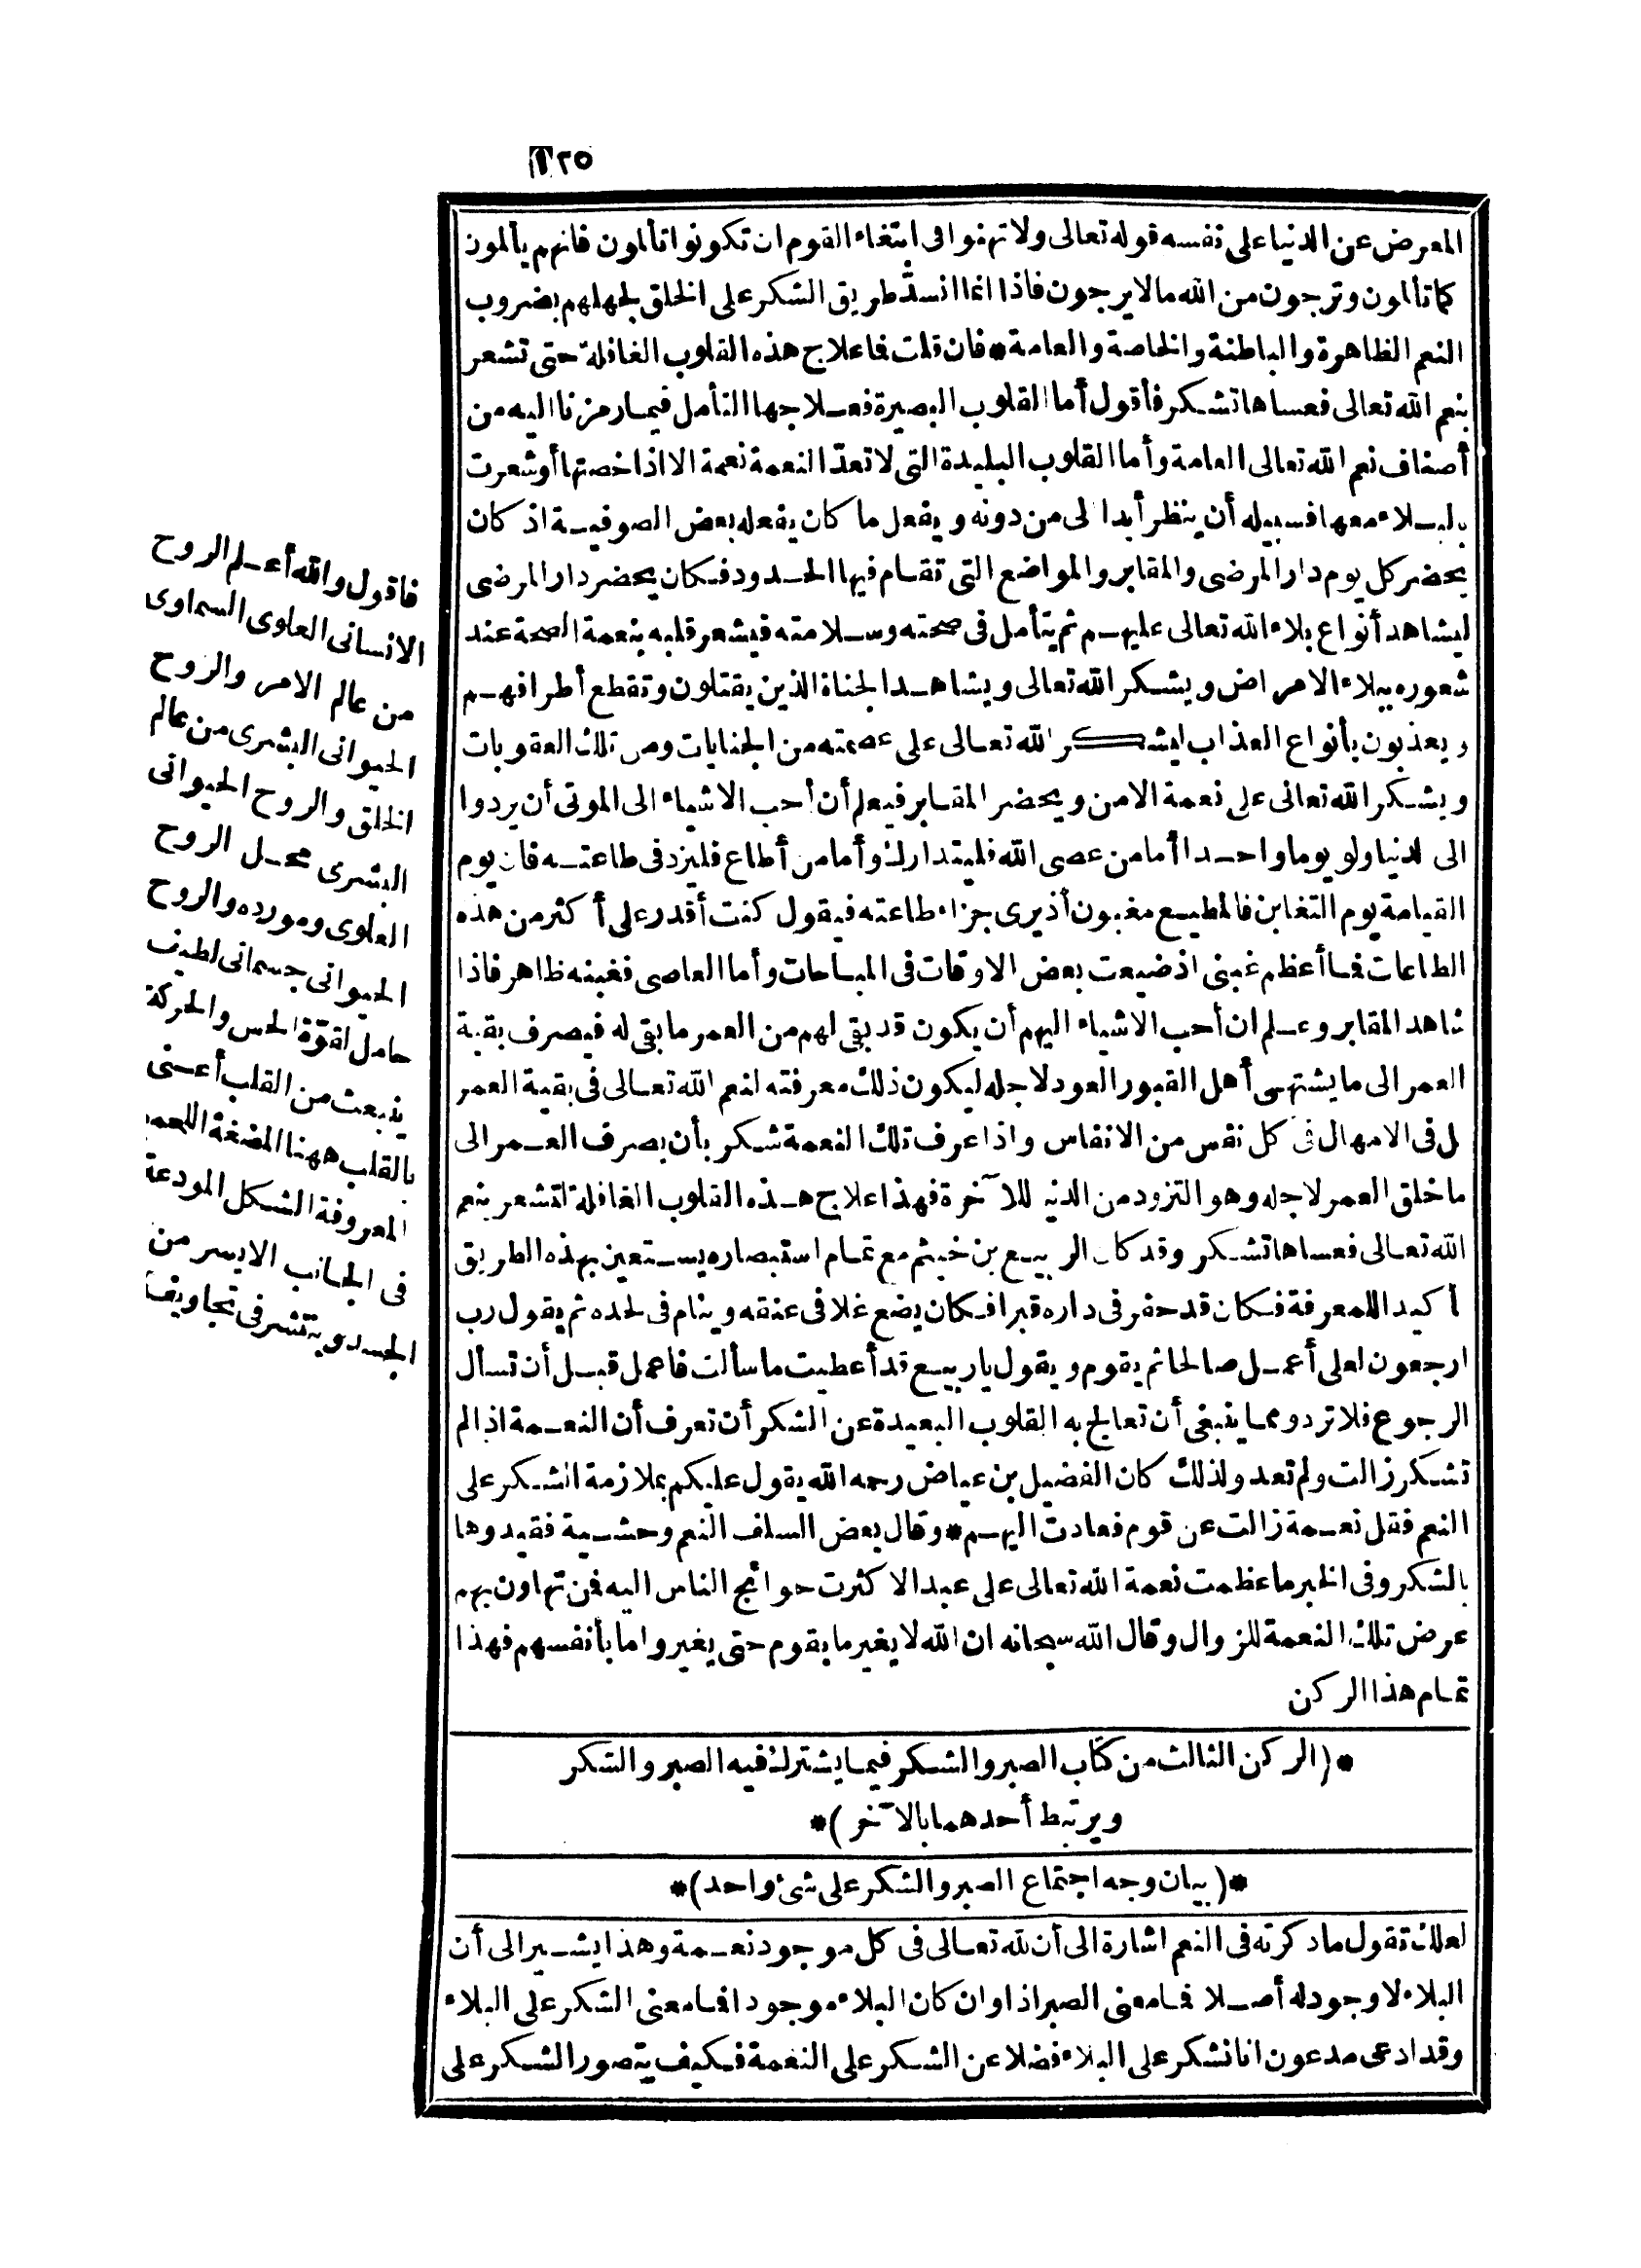 ١٢٥
المعرض عن الدنيا على نفسه قوله تعالى ولا تهنوا فى ابتغاء القوم ان تكونوا تألمون فانهم يألمون
كما تألمون وترجون من الله مالا يرجون فاذا انما انسدّ طريق الشكر على الخلق لجهلهم بضروب
النعم الظاهرة والباطنة والخاصة والعامة * فان قلت فما علاج هذه القلوب الغافلة حتى تشعر
بنعم الله تعالى فعساها تشكر فأقول أما القلوب البصيرة فعلاجها التأمل فيما رمزنا اليه من
أصناف نعم الله تعالى العامة وأما القلوب البليدة التى لا تعدّ النعمة نعمة الا اذا خصتها أو شعرت
بالبلاء معها فسبيله أن ينظر أبدا الى من دونه ويفعل ما كان يفعله بعض الصوفية اذ كان
يحضر كل يوم دار المرضى والمقابر والمواضع التى تقام فيها الحدود فكان يحضر دار المرضى
ليشاهد أنواع بلاء الله تعالى عليهم ثم يتأمل فى صحته وسلامته فيشعر قلبه بنعمة الصحة عند
شعوره ببلاء الامراض ويشكر الله تعالى ويشاهد الجناة الذين يقتلون وتقطع أطرافهم
ويعذبون بأنواع العذاب ليشكر الله تعالى على عصمته من الجنايات ومن تلك العقوبات
ويشكر الله تعالى على نعمة الامن ويحضر المقابر فيعلم أن أحب الاشياء الى الموتى أن يردوا
الى الدنيا ولو يوما واحدا أما من عصى الله فليتدارك وأما من أطاع فليزد فى طاعته فان يوم
القيامة يوم التغابن فالمطيع مغبون أذ يرى جزاء طاعته فيقول كنت أقدر على أكثر من هذه
الطاعات فما أعظم غبنى اذ ضيعت بعض الاوقات فى المباحات وأما العاصى فغبنه ظاهر فاذا
شاهد المقابر وعلم ان أحب الاشياء اليهم أن يكون قد بقى لهم من العمر ما بقى له فيصرف بقية
العمر الى ما يشتهى أهل القبور العود لاجله ليكون ذلك معرفته لنعم الله تعالى فى بقية العمر
بل فى الامهال فى كل نفس من الانفاس واذا عرف تلك النعمة شكر بأن يصرف العمر الى
ما خلق العمر لاجله وهو التزود من الدنيا للآخرة فهذا علاج هذه القلوب الغافلة لتشعر بنعم
الله تعالى فعساها تشكر وقد كان الربيع بن خيثم مع تمام استبصاره يستعين بهذه الطريق
أكيدا للمعرفة فكان قد حفر فى داره قبرا فكان يضع غلا فى عنقه وينام فى لحده ثم يقول رب
ارجعون لعلى أعمل صالحا ثم يقوم ويقول يا ربيع قد أعطيت ما سألت فاعمل قبل أن تسأل
الرجوع فلا ترد ومما ينبغى أن تعالج به القلوب البعيدة عن الشكر أن تعرف أن النعمة اذا لم
تشكر زالت ولم تعد ولذلك كان الفضيل بن عياض رحمه الله يقول عليكم بملازمة الشكر على
النعم فقل نعمة زالت عن قوم فعادت اليهم * وقال بعض السلف النعم وحشية فقيدوها
بالشكر وفى الخبر ما عظمت نعمة الله تعالى على عبد الا كثرت حوائج الناس اليه فمن تهاون بهم
عرض تلك النعمة للزوال وقال الله سبحانه ان الله لا يغير ما بقوم حتى يغيروا ما بأنفسهم فهذا
تمام هذا الركن
*(الركن الثالث من كتاب الصبر والشكر فيما يشترك فيه الصبر والشكر
ويرتبط أحدهما بالآخر)*
*(بيان وجه اجتماع الصبر والشكر على شئ واحد)*
لعلك تقول ما ذكرته فى النعم اشارة الى أن لله تعالى فى كل موجود نعمة وهذا يشير الى أن
البلاء لا وجود له أصلا فما معنى الصبر اذا وان كان البلاء موجودا فما معنى الشكر على البلاء
وقد ادعى مدعون انا نشكر على البلاء فضلا عن الشكر على النعمة فكيف يتصور الشكر على
فاقول والله أعلم الروح
الانسانى العلوى السماوى
من عالم الامر والروح
الحيوانى البشرى من عالم
الخلق والروح الحيوانى
البشرى محل الروح
العلوى ومورده والروح
الحيوانى جسمانى لطيف
حامل لقوّة الحس والحركة
ينبعث من القلب أعنى
بالقلب ههنا المضغة اللحمية
المعروفة الشكل المودعة
فى الجانب الايسر من
الجسد وينتشر فى تجاويف